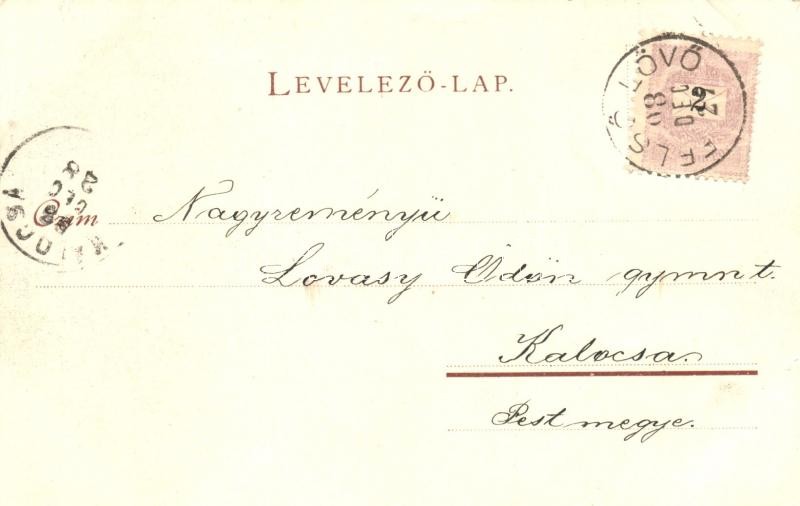 LEVELEZÖ-LAP.
FELSŐ LÖVŐ
98
DEC
27
2
KALOCSA
98
DEC
28
Czim
Nagyreményü
Lovasy Ödön gymnt.
Kalocsa.
Pest megye.